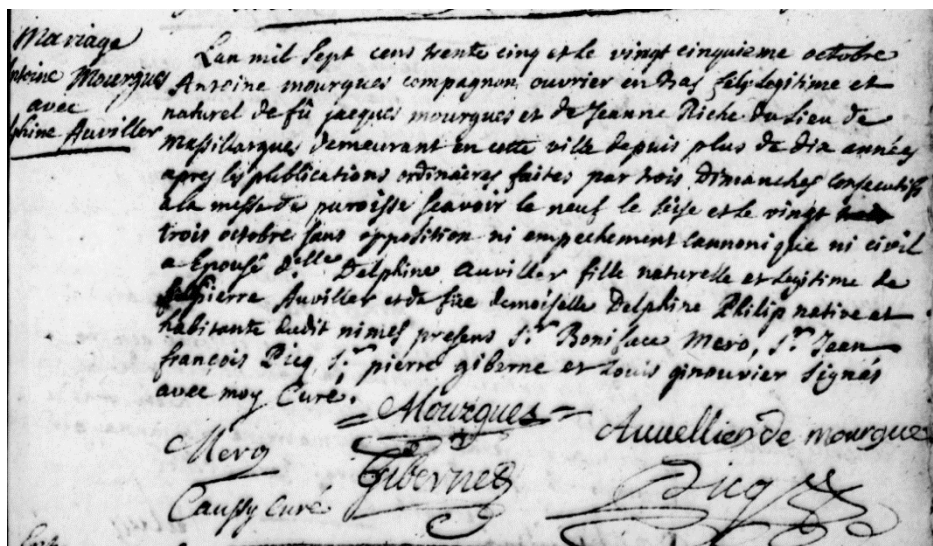 Mariage
Antoine Mourgues
avec
Delphine Auviller
Lan mil Sept cens trente cinq et le vingt cinquieme octobre
Antoine mourgues compagnon ouvrier en bas fils legitime et
naturel de fû jacques mourgues et de Jeanne Riche du Lieu de
massillargues demeurant en cette ville depuis plus de dix années
apres les publications ordinaires faites par trois Dimanches Consecutifs
a la messe de paroisse scavoir le neuf le seise et le vingt
trois octobre sans opposition ni empechement cannonique ni civil
a Epousé d.elle Delphine Auviller fille naturelle et legitime de
pierre Auviller et de füe demoiselle Delphine Philip native et
habitante dudit nimes presens s.r Boniface Mero, s.r Jean
françois Picq, s.r pierre giberne et Louis ginouvier Signés
avec moy Curé.
Mourgues
Auvellier de mourgue
Mero
Giberne
Picq
Caussy curé